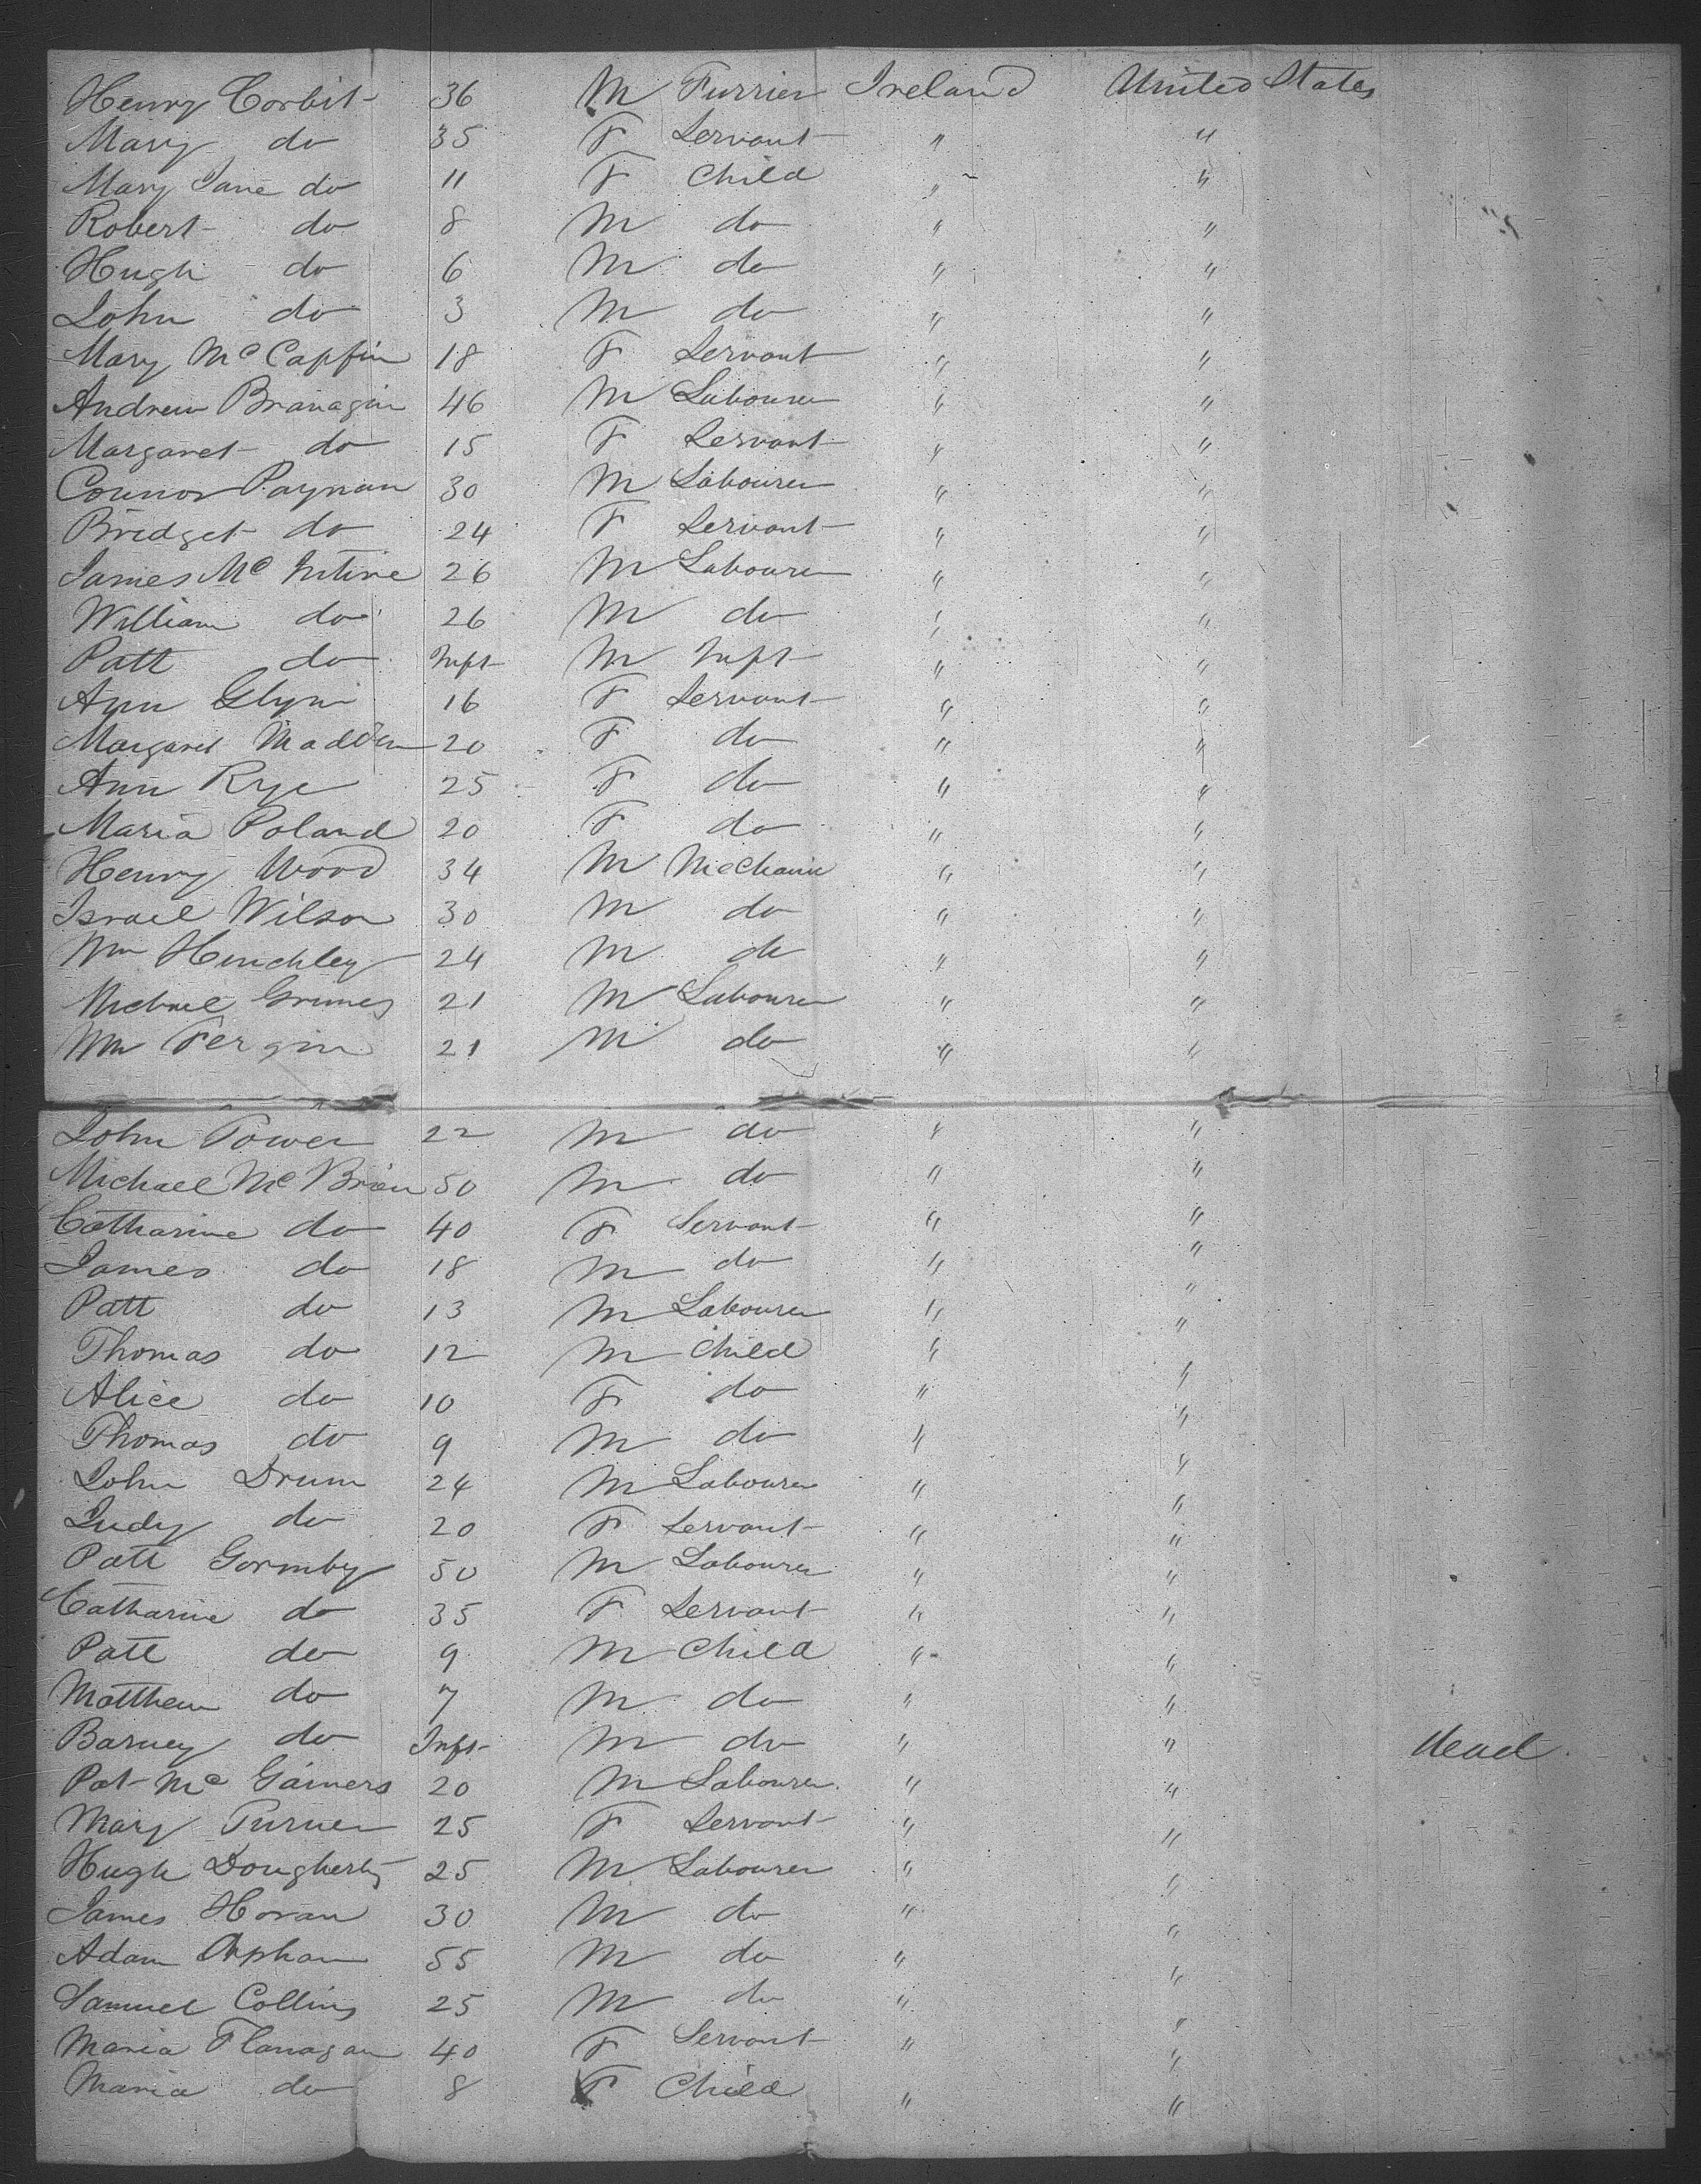 Henry Corbit 36 M Furrier Ireland United States
Mary do 35 F Servant " "
Mary Jane do 11 F Child " "
Robert do 8 M do " "
Hugh do 6 M do " "
John do 3 M do " "
Mary Mc Caffin 18 F Servant " "
Andrew Branagin 46 M Labourer " "
Margaret do 15 F Servant " "
Connor Paynan 30 M Labourer " "
Bridget do 24 F Servant " "
James Mc Intire 26 M Labourer " "
William do 26 M do " "
Patt do Inft M Inft " "
Ann Glynn 16 F Servant " "
Margaret Madden 20 F do " "
Ann Rye 25 F do " "
Maria Poland 20 F do " "
Henry Wood 34 M Mechanic " "
Israel Wilson 30 M do " "
Wm Hinchley 24 M do " "
Michael Grimes 21 M Labourer " "
Wm Fergin 21 M do " "
John Power 22 M do " "
Michael Mc Brien 50 M do " "
Catharine do 40 F Servant " "
James do 18 M do " "
Patt do 13 M Labourer " "
Thomas do 12 M Child " "
Alice do 10 F do " "
Thomas do 9 M do " "
John Drum 24 M Labourer " "
Judy do 20 F Servant " "
Patt Gormby 50 M Labourer " "
Catharine do 35 F Servant " "
Patt do 9 M Child " "
Matthew do 7 M do " "
Barney do Inft M do " " dead
Pat Mc Gainers 20 M Labourer " "
Mary Turner 25 F Servant " "
Hugh Dougherty 25 M Labourer " "
James Horan 30 M do " "
Adam Orphan 55 M do " "
Samuel Collins 25 M do " "
Maria Flanagan 40 F Servant " "
Maria do 8 F Child " "